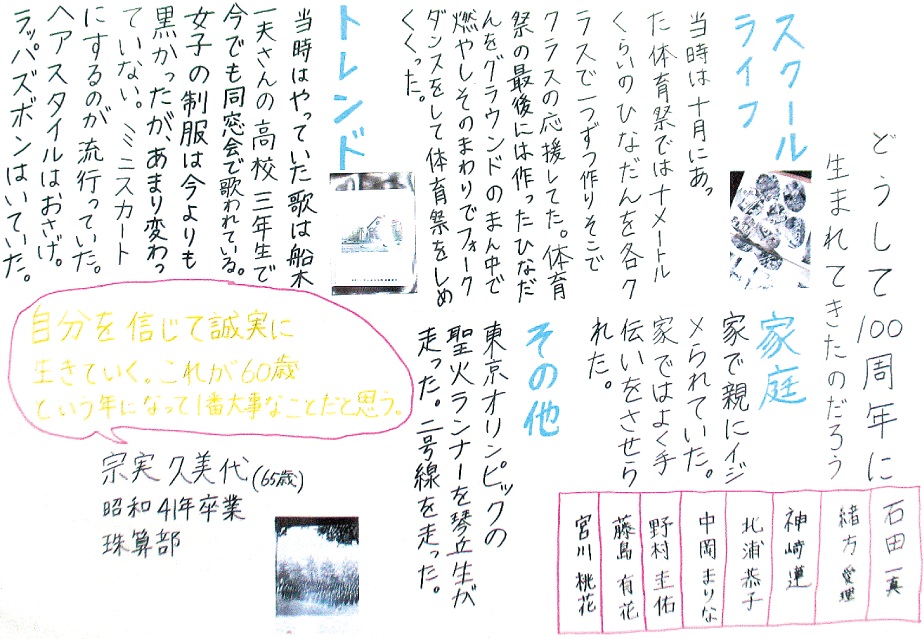 どうして100周年に
生まれてきたのだろう
スクール
ライフ
当時は十月にあっ
た体育祭では十メートル
くらいのひなだんを各ク
ラスで一つずつ作りそこで
クラスの応援してた。体育
祭の最後には作ったひなだ
んをグラウンドのまん中で
燃やしそのまわりでフォーク
ダンスをして体育祭をしめ
くくった。
トレンド
当時はやっていた歌は船木
一夫さんの高校三年生で
今でも同窓会で歌われている。
女子の制服は今よりも
黒かったが、あまり変わっ
ていない。ミニスカート
にするのが流行っていた。
ヘアスタイルはおさげ。
ラッパズボンはいていた。
家庭
家で親にイジ
メられていた。
家ではよく手
伝いをさせら
れた。
その他
東京オリンピックの
聖火ランナーを琴丘生が
走った。二号線を走った。
自分を信じて誠実に
生きていく。これが60歳
という年になって1番大事なことだと思う。
宗実久美代(65歳)
昭和41年卒業
珠算部
石田一真
緒方愛理
神崎蓮
北浦恭子
中岡まりな
野村圭佑
藤島有花
宮川桃花